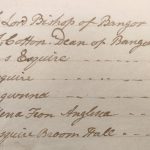 Lord Bishop of Bangor
Cotton. Dean of Bango
s Esquire
squire
gwnna
ena Fron Anglica
squire Broom Hall